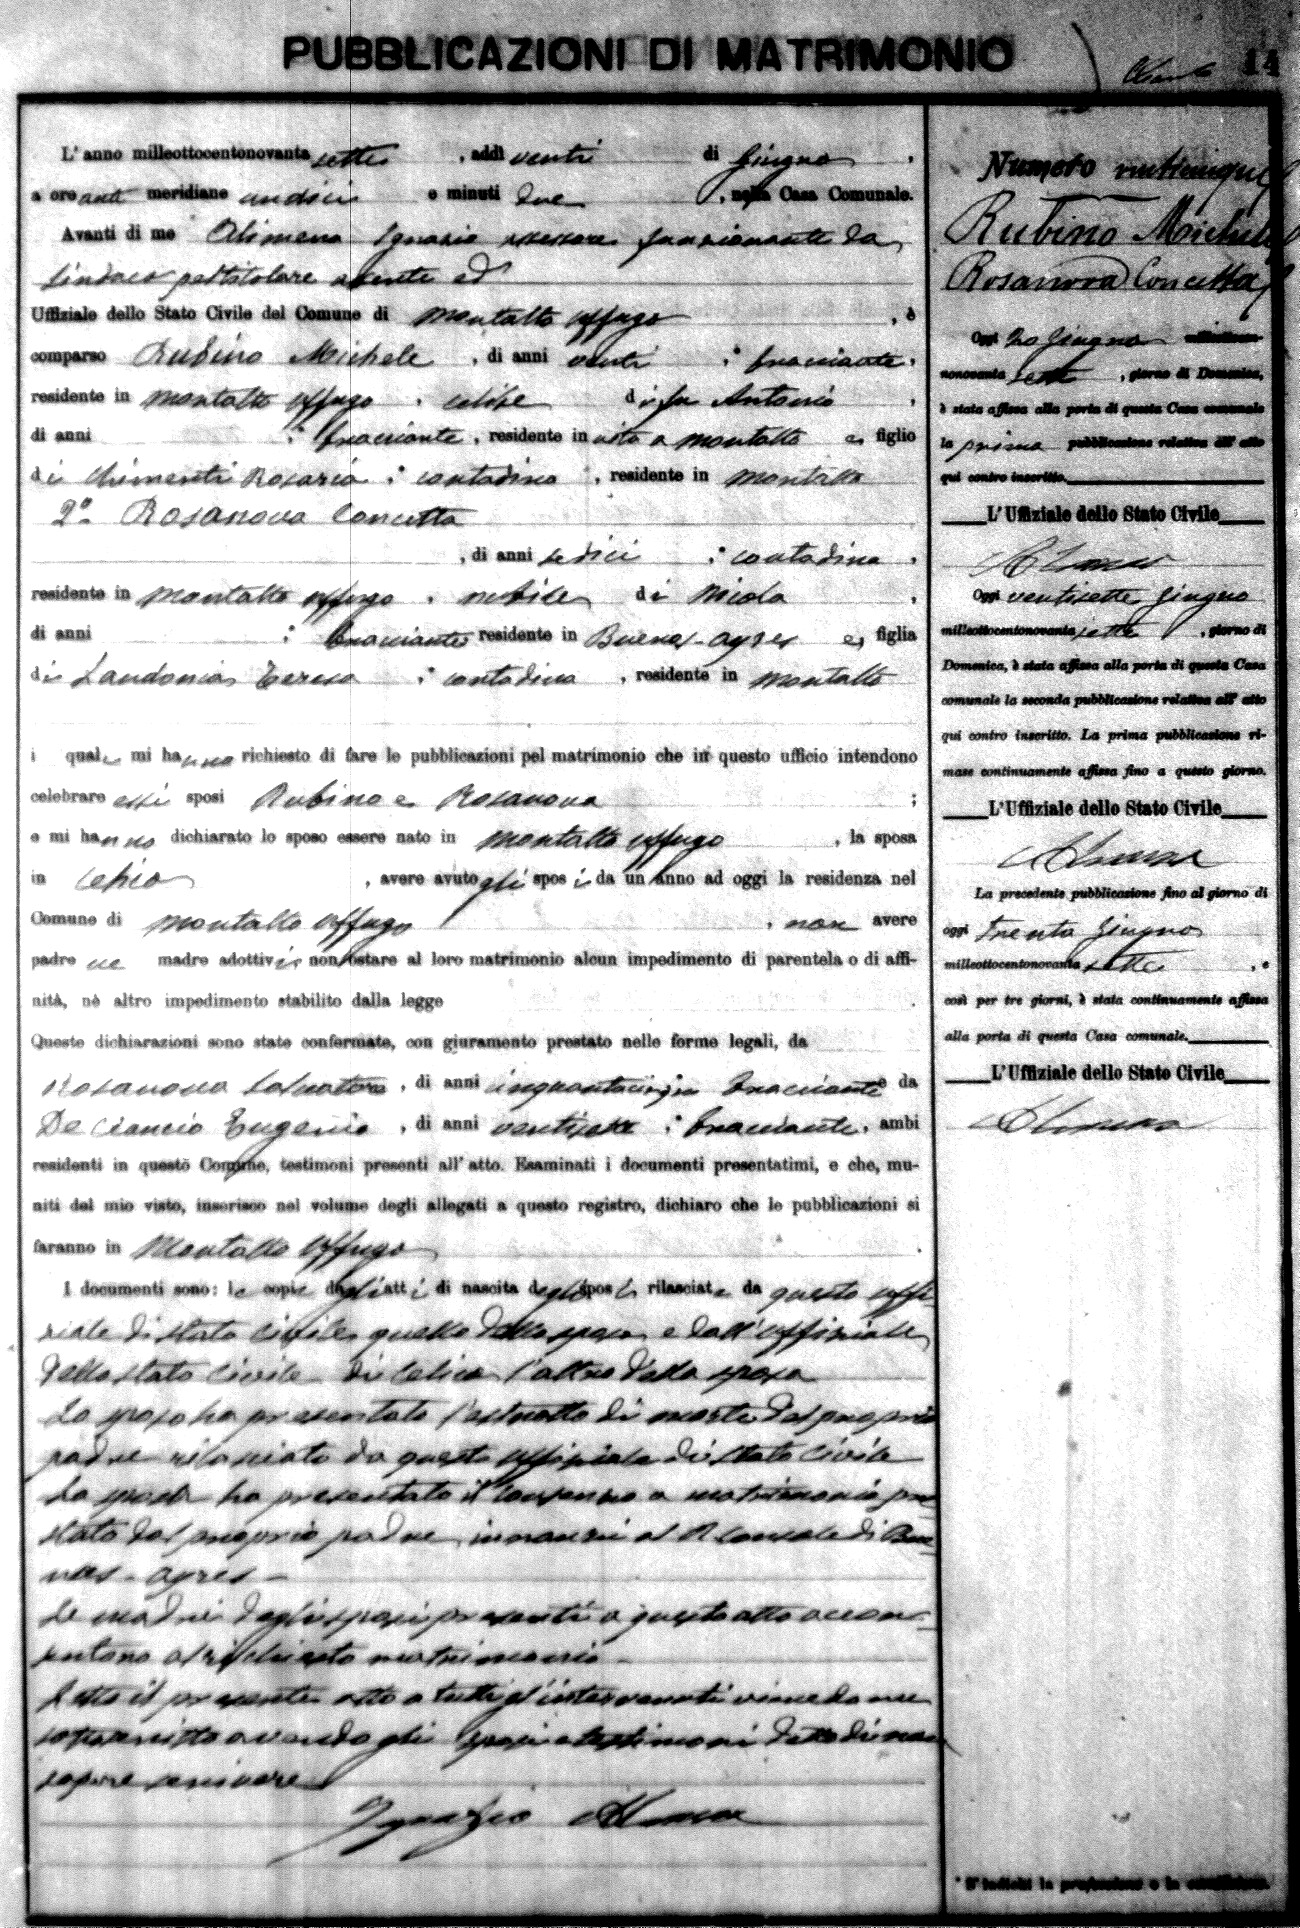 PUBBLICAZIONI DI MATRIMONIO
14
L'anno milleottocentonovanta sette, addì venti di Giugno,
a ore anti meridiane undici e minuti due, nella Casa Comunale.
Avanti di me Alimena Ignazio assessore funzionante da
Sindaco pel titolare assente ed
Uffiziale dello Stato Civile del Comune di Montalto Uffugo, è
comparso Rubino Michele, di anni venti, bracciante,
residente in Montalto Uffugo, celibe di fu Antonio,
di anni , bracciante, residente in vita a Montalto e figlio
di Chimenti Rosaria, contadina, residente in Montalto
2º Rosanova Concetta
, di anni sedici, contadina,
residente in Montalto Uffugo, nubile di Nicola,
di anni : bracciante residente in Buenos-ayres e figlia
di Laudonia Teresa, contadina, residente in Montalto
i quali mi hanno richiesto di fare le pubblicazioni pel matrimonio che in questo ufficio intendono
celebrare essi sposi Rubino e Rosanova ;
e mi hanno dichiarato lo sposo essere nato in Montalto Uffugo, la sposa
in Celico, avere avuto gli sposi da un anno ad oggi la residenza nel
Comune di Montalto Uffugo, non avere
padre ne madre adottivi non ostare al loro matrimonio alcun impedimento di parentela o di affi-
nità, nè altro impedimento stabilito dalla legge
Queste dichiarazioni sono state confermate, con giuramento prestato nelle forme legali, da
Rosanova Salvatore, di anni cinquantacinque bracciante e da
De Ciancio Eugenio, di anni ventisette, bracciante, ambi
residenti in questo Comune, testimoni presenti all'atto. Esaminati i documenti presentatimi, e che, mu-
niti del mio visto, inserisco nel volume degli allegati a questo registro, dichiaro che le pubblicazioni si
faranno in Montalto Uffugo
I documenti sono: le copie degli atti di nascita degli sposi rilasciate da questo uffi-
ziale di stato civile quella dello sposo e dall'uffiziale
dello stato civile di Celico l'altra della sposa
Lo sposo ha presentato l'estratto di morte del proprio
padre rilasciato da questo uffiziale di stato civile
La sposa ha presentato il consenso a matrimonio pre
stato dal proprio padre innanzi al R Console di Bue
nos-ayres-
Le madri degli sposi presenti a questo atto accon-
sentono al richiesto matrimonio-
Letto il presente atto a tutti gl'intervenuti viene da me
sottoscritto avendo gli sposi e testimoni detto di non
sapere scrivere
Ignazio Alimena
Numero venticinque
Rubino Michele
Rosanova Concetta
Oggi 20 Giugno milleottocento-
nonovanta sette, giorno di Domenica,
è stata affissa alla porta di questa Casa comunale
la prima pubblicazione relativa all'atto
qui contro inscritto.
L'Uffiziale dello Stato Civile
Alimena
Oggi ventisette Giugno
milleottocentonovanta sette, giorno di
Domenica, è stata affissa alla porta di questa Casa
comunale la seconda pubblicazione relativa all'atto
qui contro inscritto. La prima pubblicazione ri-
mase continuamente affissa fino a questo giorno.
L'Uffiziale dello Stato Civile
Alimena
La precedente pubblicazione fino al giorno di
oggi trenta Giugno
milleottocentonovanta sette, e
così per tre giorni, è stata continuamente affissa
alla porta di questa Casa comunale.
L'Uffiziale dello Stato Civile
Alimena
* S'indichi la professione o la condizione.